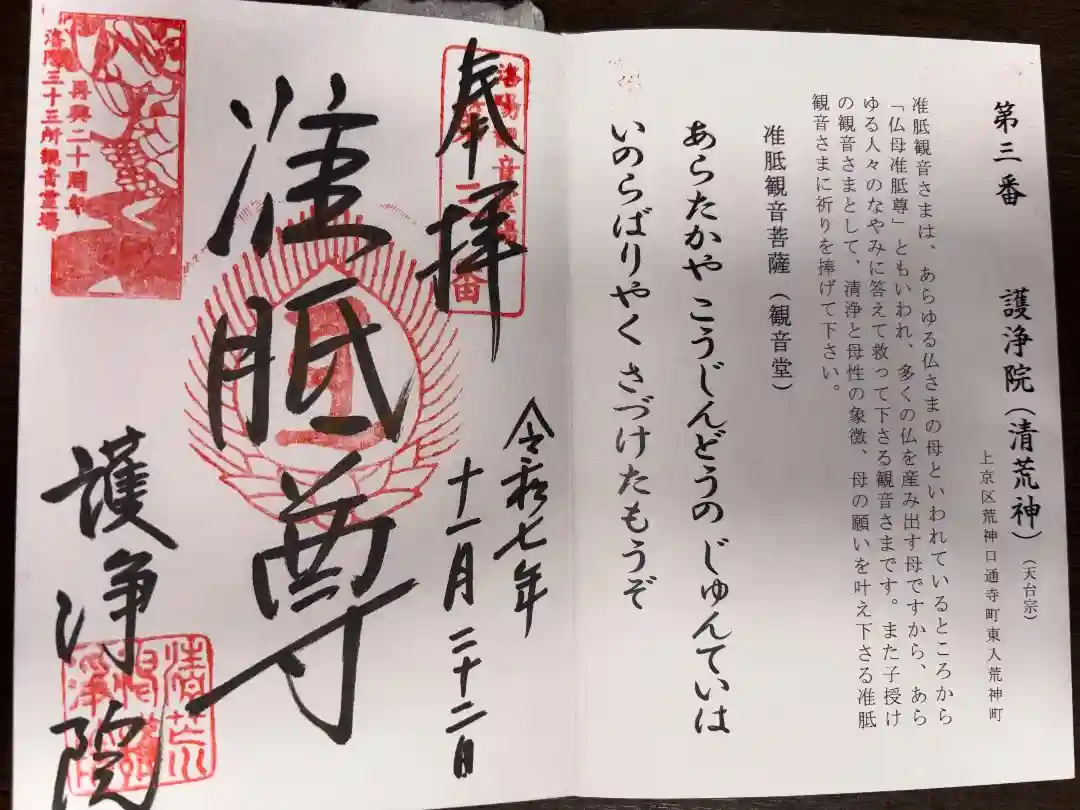 第三番 護浄院(清荒神)(天台宗)
上京区荒神口通寺町東入荒神町
准胝観音さまは、あらゆる仏さまの母といわれているところから
「仏母准胝尊」ともいわれ、多くの仏を産み出す母ですから、あら
ゆる人々のなやみに答えて救って下さる観音さまです。また子授け
の観音さまとして、清浄と母性の象徴、母の願いを叶え下さる准胝
観音さまに祈りを捧げて下さい。
准胝観音菩薩(観音堂)
あらたかや こうじんどうの じゅんていは
いのらばりやく さづけたもうぞ
奉拝
令和七年
十一月二十二日
准胝尊
護浄院
再興二十周年
洛陽三十三所観音霊場